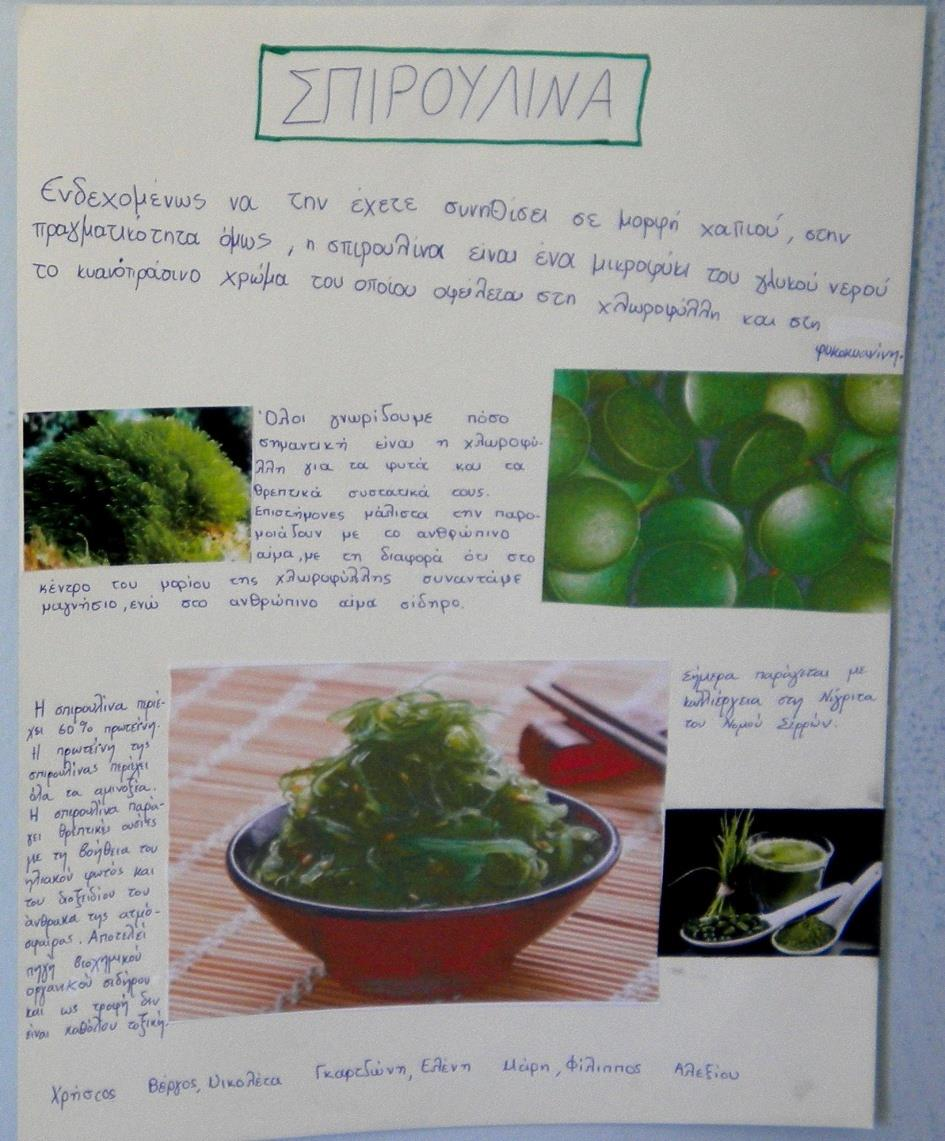 ΣΠΙΡΟΥΛΙΝΑ
Ενδεχομένως να την έχετε συνηθίσει σε μορφή χαπιού, στην
πραγματικότητα όμως, η σπιρουλίνα είναι ένα μικροφύκι του γλυκού νερού
το κυανοπράσινο χρώμα του οποίου οφείλεται στη χλωροφύλλη και στη
φυκοκυανίνη.
Όλοι γνωρίζουμε πόσο
σημαντική είναι η χλωροφύ-
λλη για τα φυτά και τα
θρεπτικά συστατικά τους.
Επιστήμονες μάλιστα την παρο-
μοιάζουν με το ανθρώπινο
αίμα, με τη διαφορά ότι στο
κέντρο του μορίου της χλωροφύλλης συναντάμε
μαγνήσιο, ενώ στο ανθρώπινο αίμα σίδηρο.
Η σπιρουλίνα περιέ-
χει 60% πρωτεΐνη.
Η πρωτεΐνη της
σπιρουλίνας περιέχει
όλα τα αμινοξέα.
Η σπιρουλίνα παρά-
γει θρεπτικές ουσίες
με τη βοήθεια του
ηλιακού φωτός και
του διοξειδίου του
άνθρακα της ατμό-
σφαιρας. Αποτελεί
πηγή βιοχημικού
οργανικού σιδήρου
και ως τροφή δεν
είναι καθόλου τοξική.
Σήμερα παράγεται με
καλλιέργεια στη Νιγρίτα
του Νομού Σερρών.
Χρήστος Βέργος, Νικολέτα Γκαρτζώνη, Ελένη Μάρη, Φίλιππος Αλεξίου